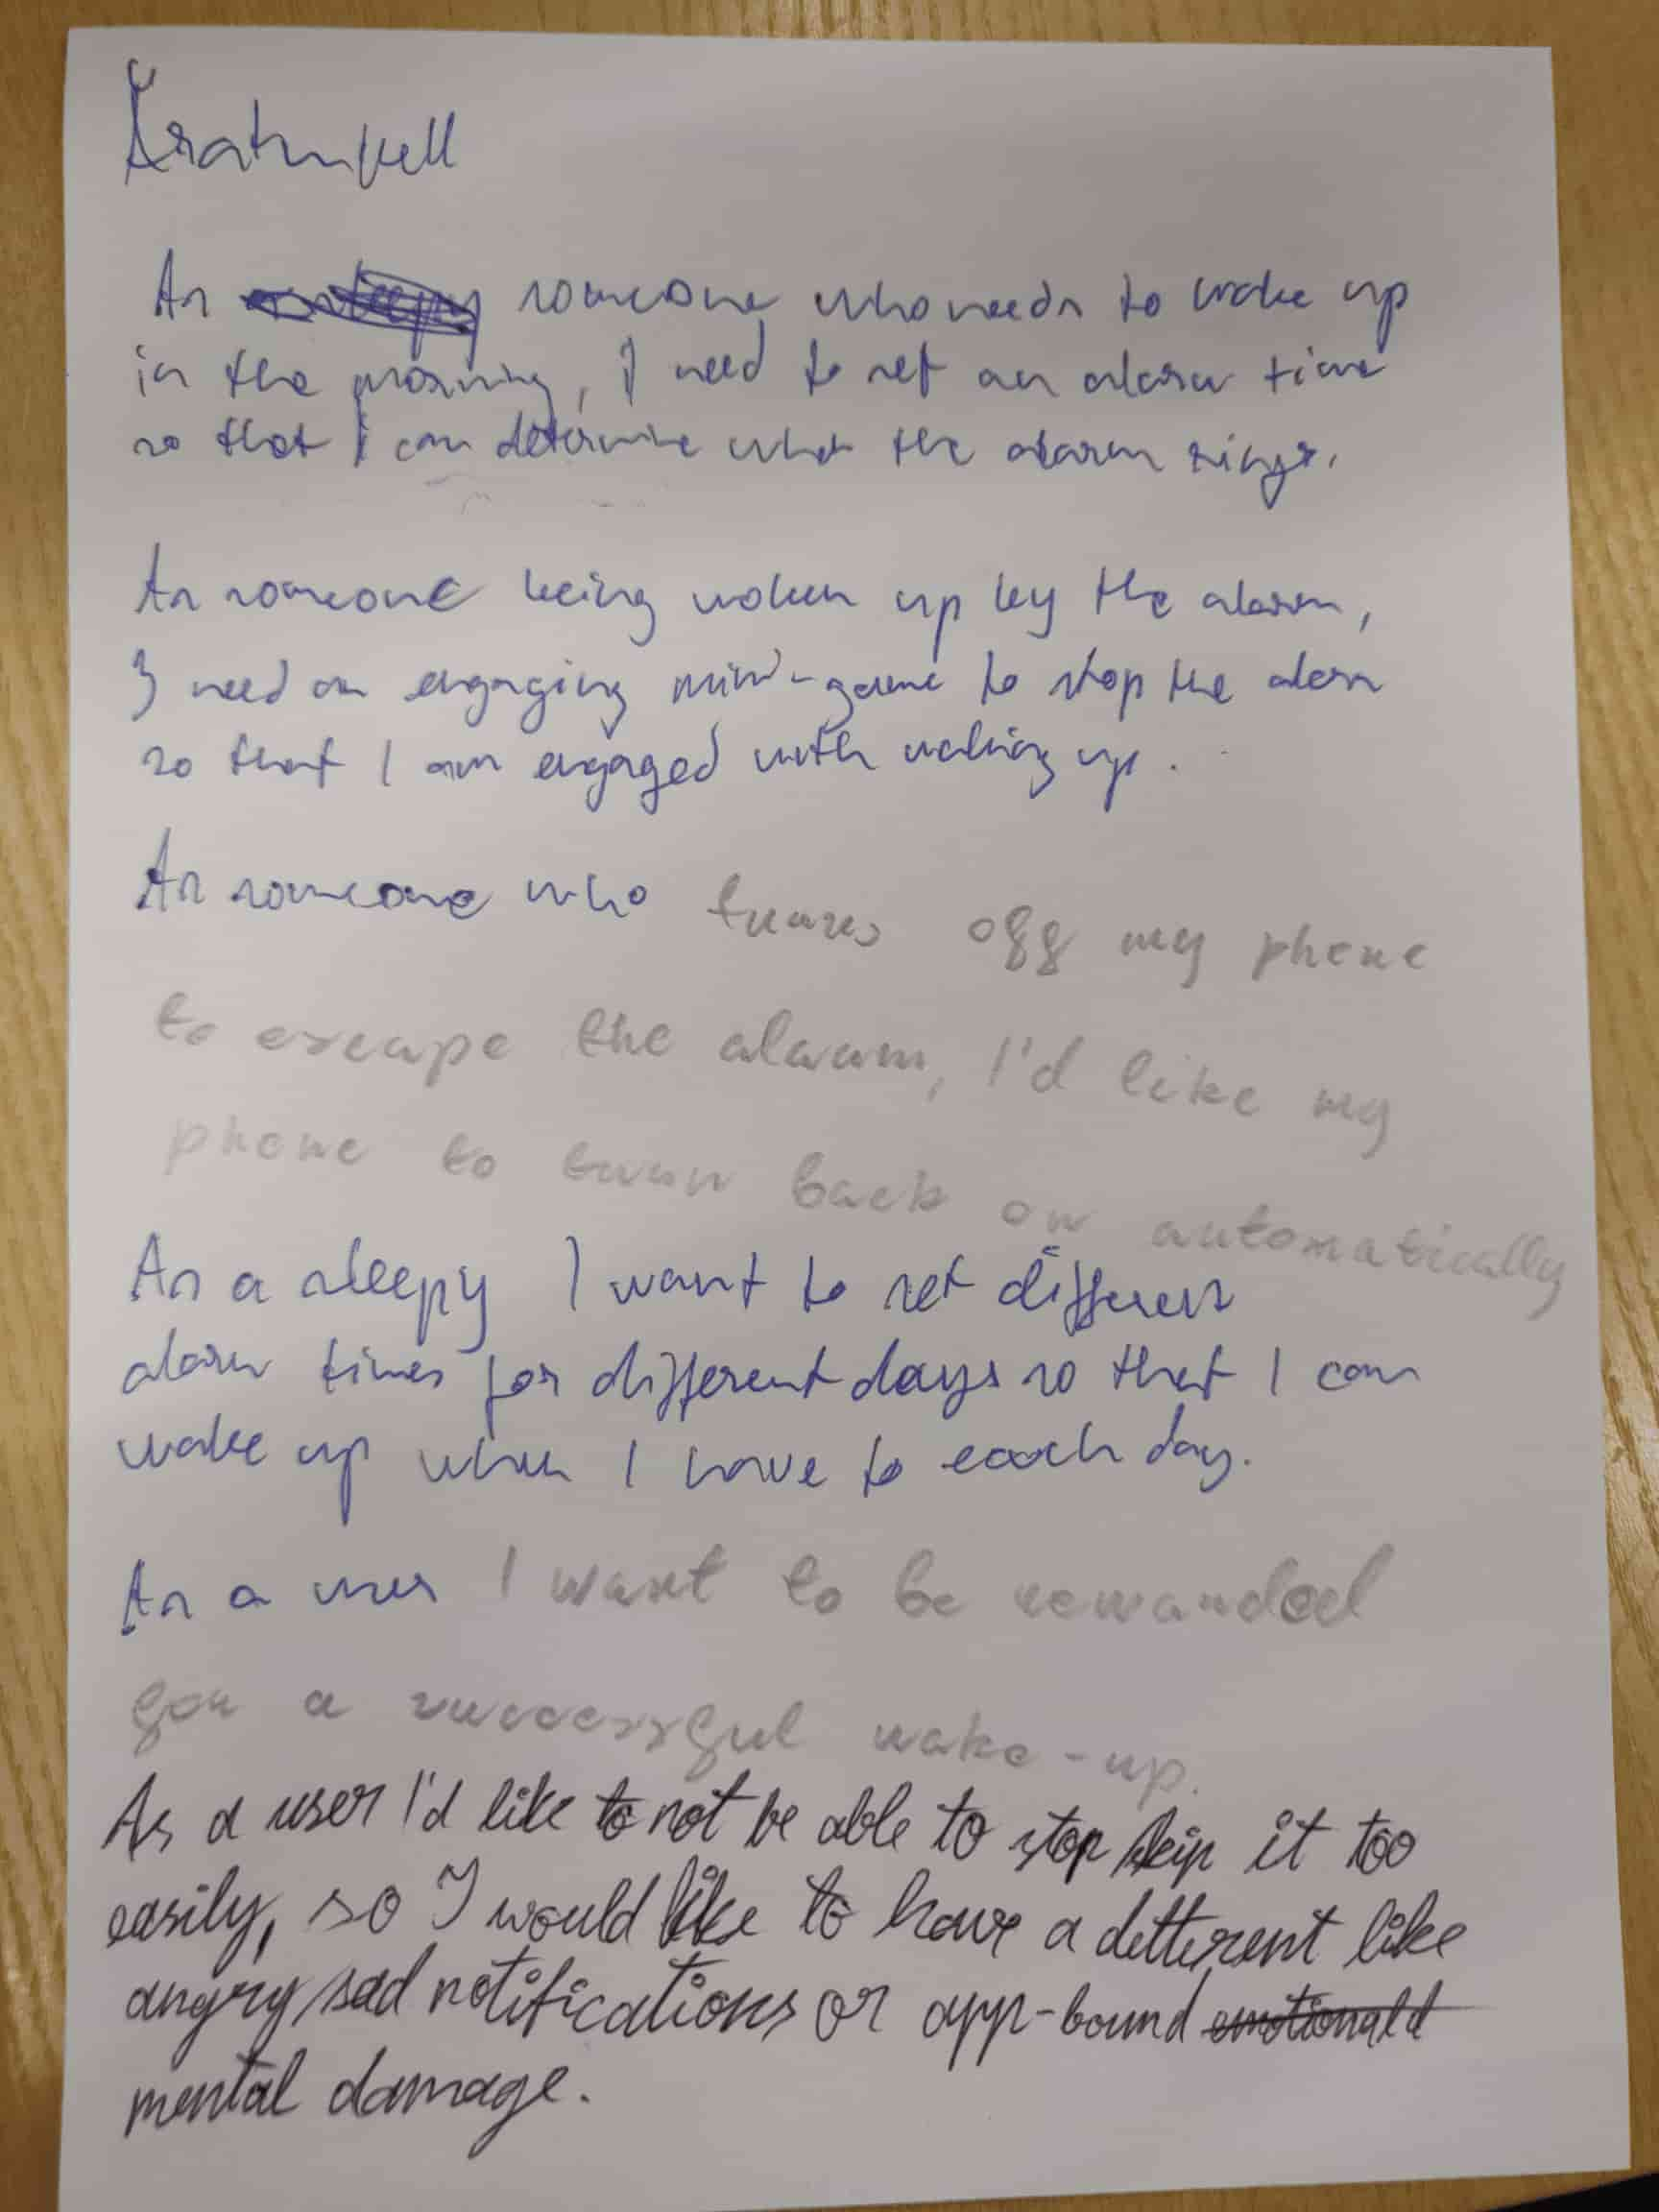 Äratuskell
As someone who needs to wake up
in the morning, I need to set an alarm time
so that I can determine when the alarm rings.
As someone being woken up by the alarm,
I need an engaging mini-game to stop the alarm
so that I am engaged with waking up.
As someone who turns off my phone
to escape the alarm, I'd like my
phone to turn back on automatically
As a sleepy I want to set different
alarm times for different days so that I can
wake up when I have to each day.
As a user I want to be rewarded
for a successful wake-up.
As a user I'd like to not be able to stop/skip it too
easily, so I would like to have a detterent like
angry/sad notifications or app-bound emotional d
mental damage.